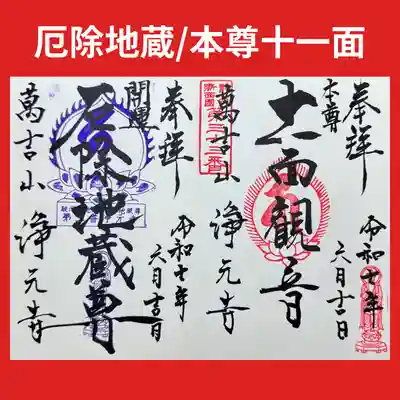 厄除地蔵/本尊十一面
奉拝
令和七年
六月吉日
本尊
十一面観音
萬吉山 浄元寺
奉拝
令和七年
六月吉日
開運
厄除地蔵尊
萬吉山 浄元寺